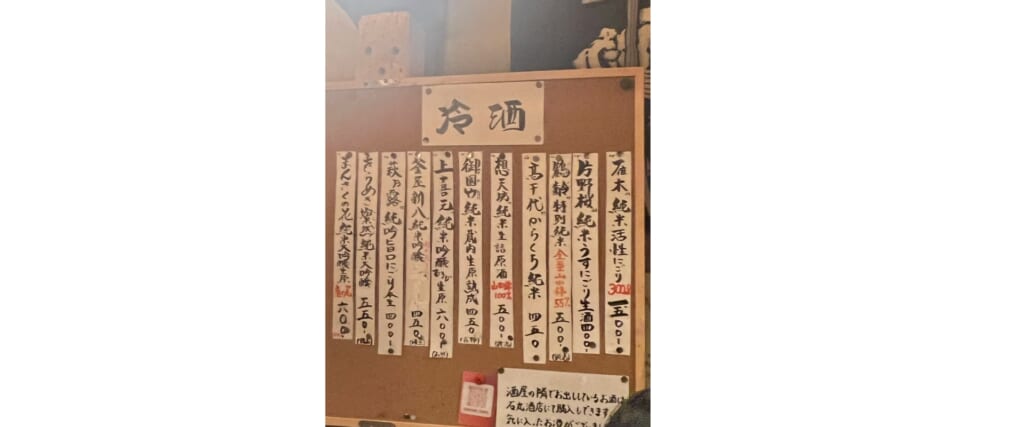 冷酒
雁木 純米活性にごり 300ml 一五〇〇
片野桜 純米うすにごり生酒 四〇〇
鶴齢 特別純米 55% 五〇〇
高千代からくち純米 四五〇
純米生詰原酒 100% 五〇〇
御国 純米蔵内生原熟成 四五〇
上喜元 純米吟醸 生原 六〇〇
釜屋新八 純米吟醸 四五〇
萩乃露 純吟旨口にごり本生 四〇〇
きらめき 純米大吟醸 五五〇
まんさくの花 純米大吟醸生原 六〇〇
酒屋の隣でお出ししているお酒は
石丸酒店にて購入もできます
気に入ったお酒がござい